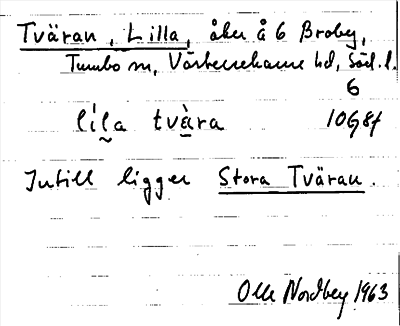 Tväran, Lilla, åker å 6 Broby,
Tumbo sn, Västerrekarne hd, Söd. l.
6
li̇́la tvàra 10G8f
Intill ligger Stora Tväran.
Olle Nordberg 1963